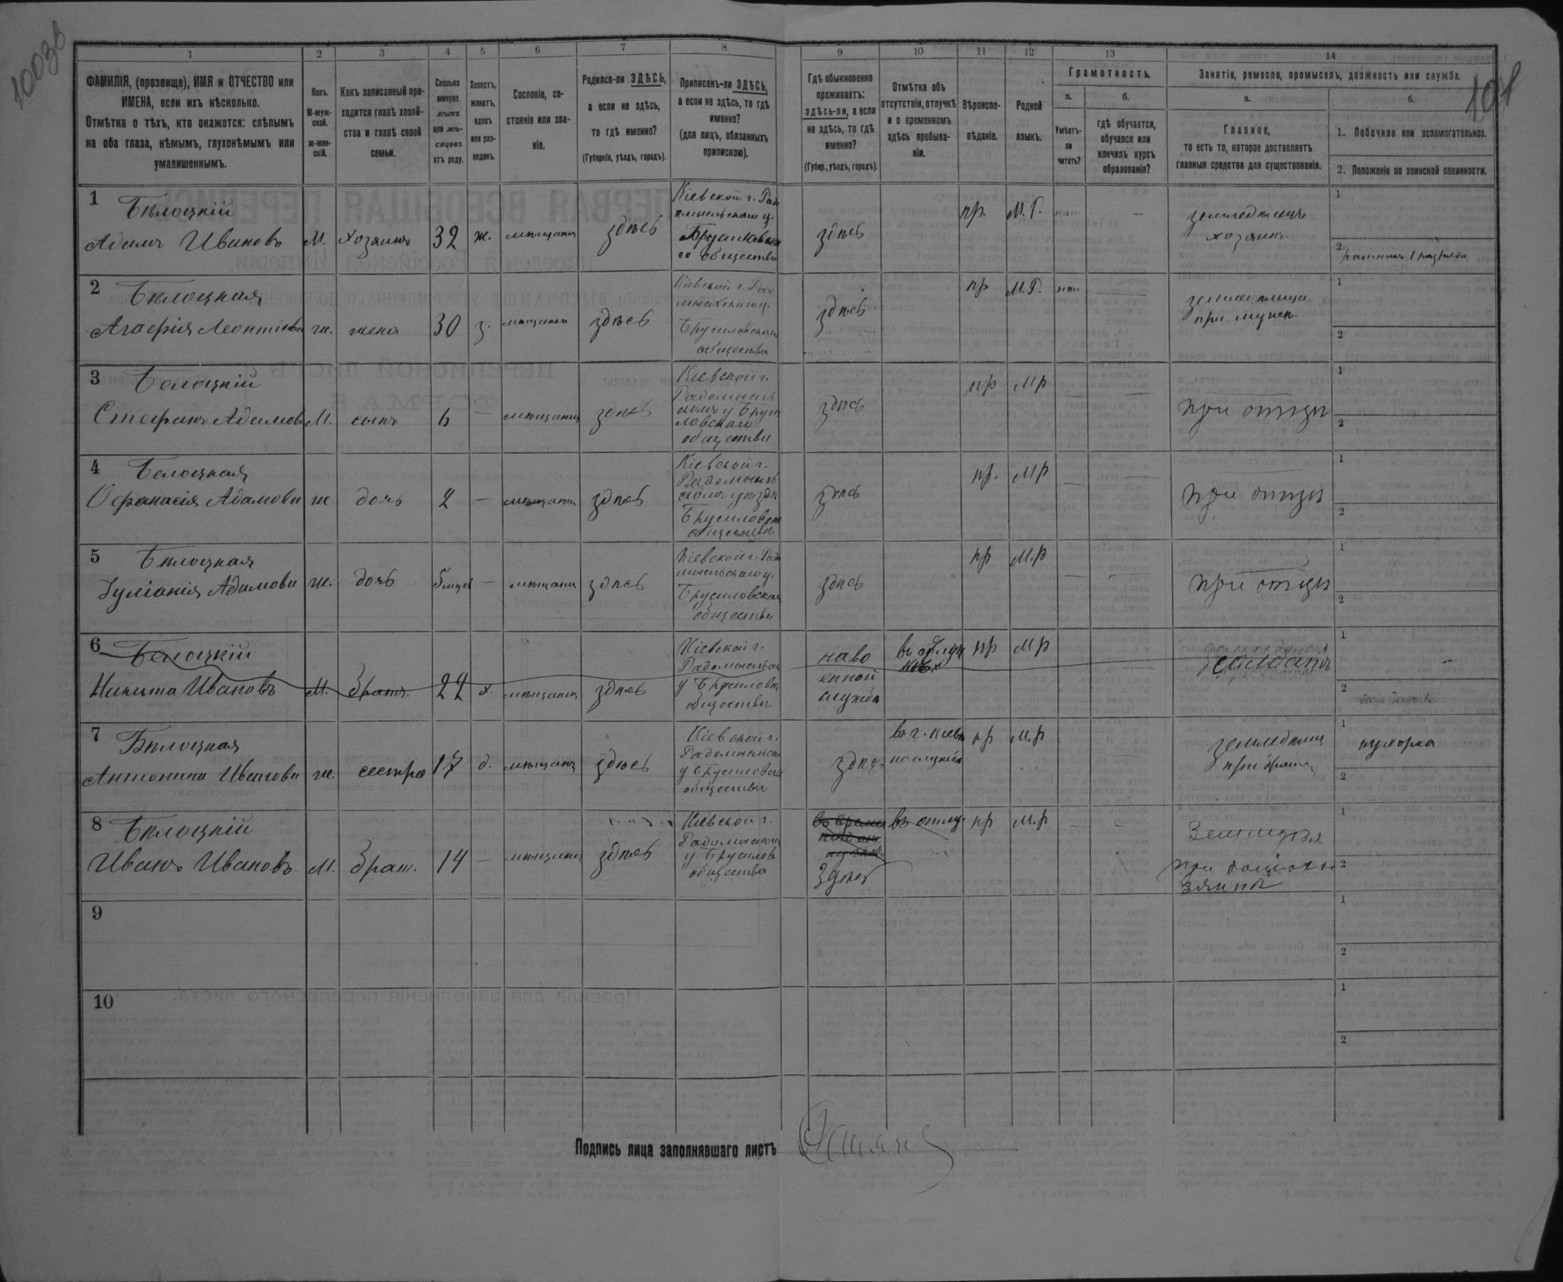 10036
101
1
2
3
4
5
6
7
8
9
10
11
12
13
14
ФАМИЛІЯ, (прозвище), ИМЯ и ОТЧЕСТВО или
ИМЕНА, если ихъ нѣсколько.
Отмѣтка о тѣхъ, кто окажется: слѣпымъ
на оба глаза, нѣмымъ, глухонѣмымъ или
умалишеннымъ.
Полъ.
М-муж-
ской.
ж-жен-
скій.
Какъ записанный при-
ходится главѣ хозяй-
ства и главѣ своей
семьи.
Сколько
минуло
лѣтъ
или мѣ-
сяцевъ
отъ роду.
Холостъ,
женатъ,
вдовъ
или раз-
веденъ.
Сословіе, со-
стояніе или зва-
ніе.
Родился-ли ЗДѢСЬ,
а если не здѣсь,
то гдѣ именно?
(Губернія, уѣздъ, городъ).
Приписанъ-ли ЗДѢСЬ,
а если не здѣсь, то гдѣ
именно?
(для лицъ, обязанныхъ
припискою).
Гдѣ обыкновенно
проживаетъ:
здѣсь-ли, а если
не здѣсь, то гдѣ
именно?
(Губер., уѣздъ, городъ).
Отмѣтка объ
отсутствіи, отлучкѣ
и о временномъ
здѣсь пребыва-
ніи.
Вѣроиспо-
вѣданіе.
Родной
языкъ.
Грамотность.
а.
б.
Умѣетъ-
ли
читать?
гдѣ обучается,
обучался или
кончилъ курсъ
образованія?
Занятіе, ремесло, промыселъ, должность или служба.
а.
б.
Главное,
то есть то, которое доставляетъ
главныя средства для существованія.
1. Побочное или вспомогательное.
2. Положеніе по воинской повинности.
1
Бѣлоцкій
Адамъ Ивановъ
М.
хозяинъ
32
ж.
мѣщанинъ
здѣсь
Кіевской г. Радо
мысльскаго у.
Брусиловска
го общества
здѣсь
пр.
М.Г.
—
хозяинъ
1
2
2
Бѣлоцкая
Агафія Леонтіева
ж.
жена
30
з.
мѣщанка
здѣсь
Кіевской г. Радо
Брусиловскаго
общества
здѣсь
пр
М.Г.
1
2
3
Бѣлоцкій
Стефанъ Адамовъ
М.
сынъ
6
—
мѣщанинъ
здѣсь
Кіевской г.
Радомысль
скомъ у Бруси
ловскаго
общества
здѣсь
пр
М р
при отцѣ
1
2
4
Бѣлоцкая
Офанасія Адамови
ж
дочь
2
—
мѣщанка
здѣсь
Кіевской г.
Радомысль
скомъ уѣздѣ
Брусиловск
общества
здѣсь
пр.
М р
при отцѣ
1
2
5
Бѣлоцкая
Іуліанія Адамови
ж.
дочь
5 мѣсяц
—
мѣщанка
здѣсь
Кіевской г. Радо
мысльскаго у.
Брусиловскаго
общества
здѣсь
пр
М.р
при отцѣ
1
2
6
Бѣлоцкій
Никита Ивановъ
М.
братъ
24
х.
мѣщанинъ
здѣсь
Кіевской г.
у Брусиловск
общества
на во
енной
службѣ
пр
М р
солдатъ
1
2
7
Бѣлоцкая
Антонина Иванови
ж.
сестра
17
д.
мѣщанка
здѣсь
Кіевской г.
у Брусиловск
общества
здѣсь
въ г. Кіевѣ
пр
М.р
при братѣ
1
кухарка
2
8
Бѣлоцкій
Иванъ Ивановъ
М.
брат.
14
—
мѣщанинъ
здѣсь
Кіевской г.
у Брусилов
общества
здѣсь
въ отлу.
пр
М.р
1
2
9
1
2
10
1
2
Подпись лица заполнявшаго листъ